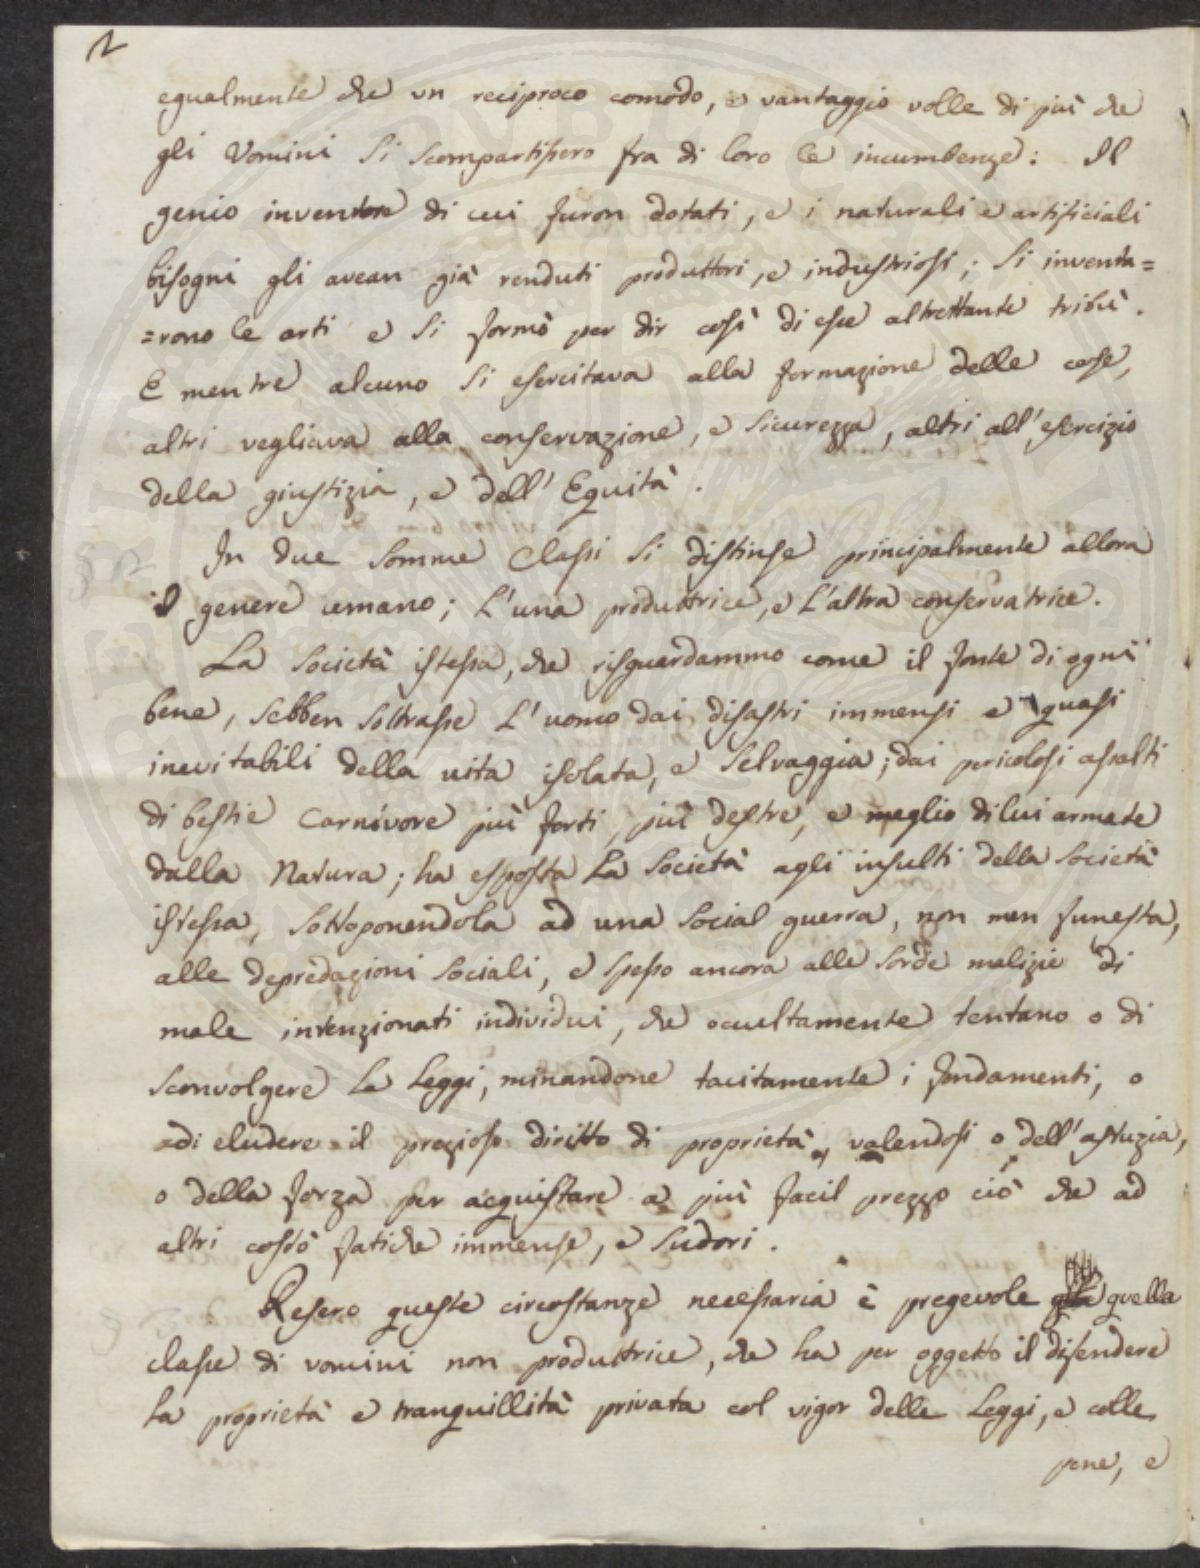 2
egualmente che un reciproco comodo, e vantaggio volle di più che
gli Uomini si scompartissero fra di loro le incumbenze: Il
genio inventore di cui furon dotati, e i naturali e artificiali
bisogni gli avean già renduti produttori, e industriosi; si inventa=
=rono le arti e si formò per dir così di esse altrettante tribù.
E mentre alcuno si esercitava alla formazione delle cose,
altri vegliava alla conservazione, e sicurezza, altri all'esercizio
della giustizia, e dell'Equità.
In due somme Classi si distinse principalmente allora
il genere umano; L'una produttrice, e L'altra conservatrice.
La Società istessa, che risguardammo come il fonte di ogni
bene, sebben soltrasse L'uomo dai disastri immensi e quasi
inevitabili della vita isolata, e selvaggia; dai pericolosi assalti
di bestie carnivore più forti, più destre, e meglio di lui armate
dalla Natura; ha esposta La Società agli insulti della Società
istessa, sottoponendola ad una social guerra, non men funesta,
alle depredazioni sociali, e spesso ancora alle sorde malizie di
male intenzionati individui, che occultamente tentano o di
sconvolgere le Leggi, minandone tacitamente i fondamenti, o
di eludere il prezioso diritto di proprietà, valendosi o dell'astuzia,
o della forza per acquistare a più facil prezzo ciò che ad
altri costò fatiche immense, e sudori.
Resero queste circostanze necessaria e pregevole quella
classe di uomini non produttrice, che ha per oggetto il difendere
la proprietà e tranquillità privata col vigor delle Leggi, e colle
pene, e